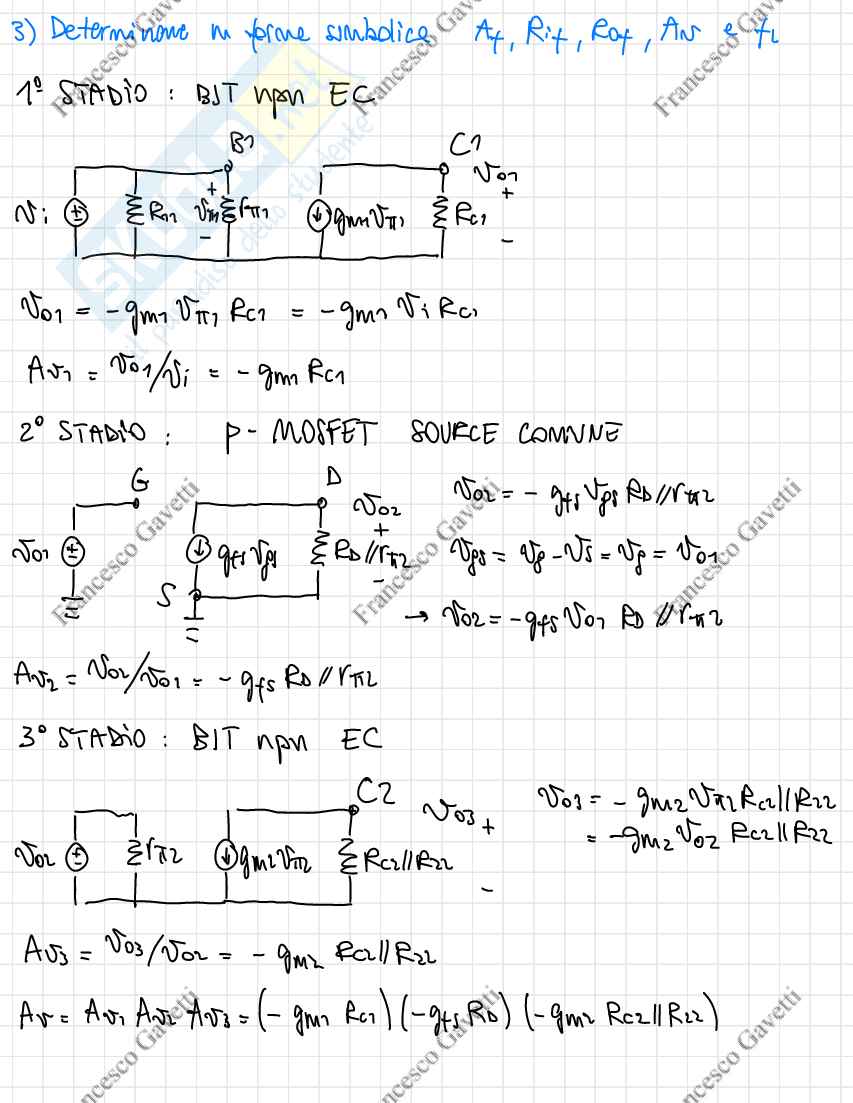 3) Determinare in forma simbolica Af, Rif, Rof, Av e fL
1° STADIO : BJT npn EC
B1 C1
vi R11 vπ1 + - rπ1 gm1vπ1 RC1 vo1 + -
vo1 = - gm1 vπ1 RC1 = - gm1 vi RC1
Av1 = vo1/vi = - gm1 RC1
2° STADIO : P- MOSFET SOURCE COMUNE
G D
vo1 gfs vgs S RD//rπ2 vo2 + -
vo2 = - gfs vgs RD//rπ2
vgs = vg - vs = vg = vo1
→ vo2 = - gfs vo1 RD//rπ2
Av2 = vo2/vo1 = - gfs RD//rπ2
3° STADIO : BJT npn EC
C2
vo2 rπ2 gm2 vπ2 RC2||R22 vo3 + -
vo3 = - gm2 vπ2 RC2||R22
= - gm2 vo2 RC2||R22
Av3 = vo3/vo2 = - gm2 RC2||R22
Av = Av1 Av2 Av3 = (- gm1 RC1) (- gfs RD) (- gm2 RC2||R22)
Francesco Gavetti
SKUOLA.net
il paradiso dello studente